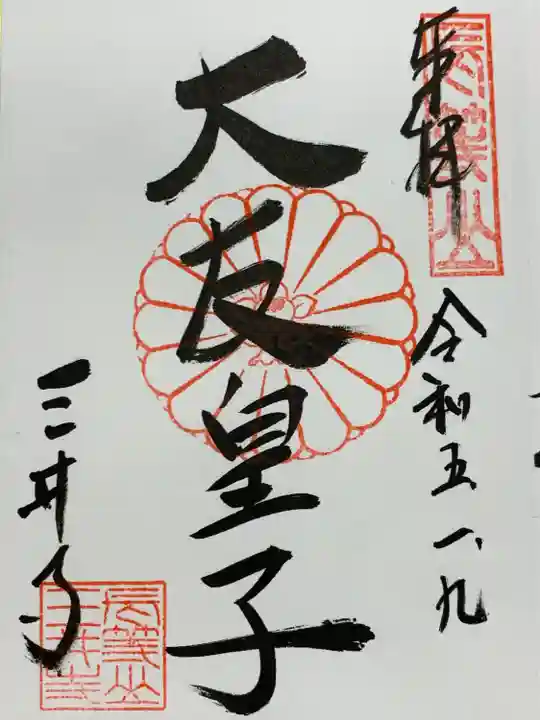 奉拝
長等山
令和五 一、九
大友皇子
三井寺
長等山
三井寺